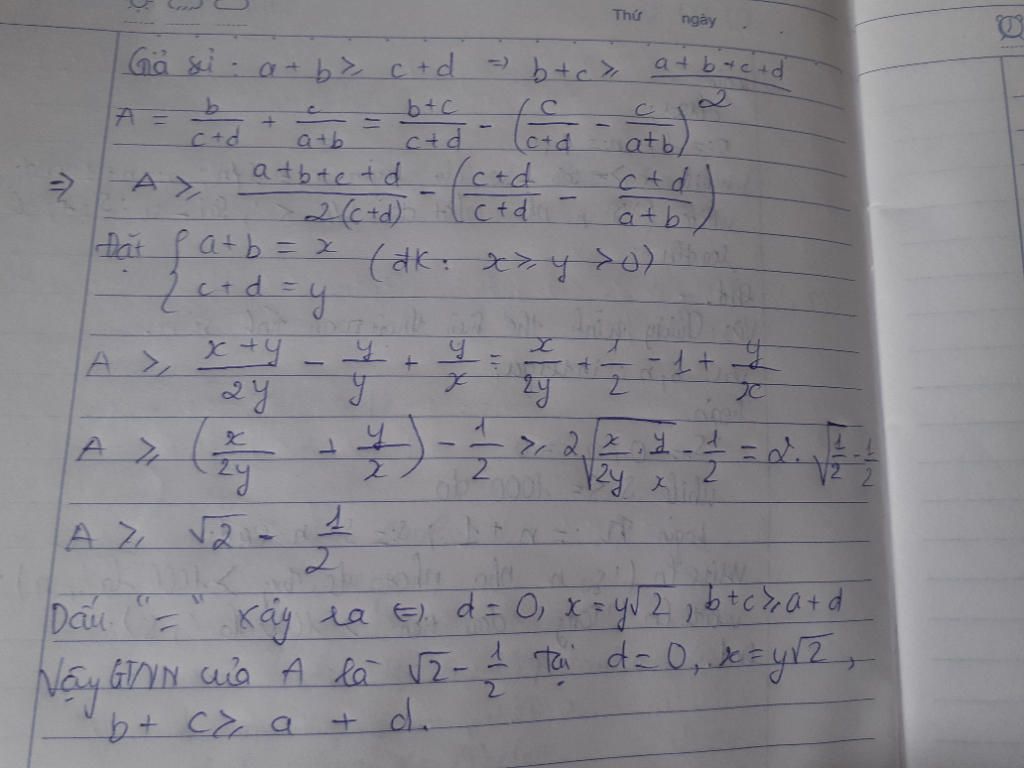 Thứ ngày
Giả sỉ : a + b ≥ c + d ⇒ b + c ≥ (a + b + c + d)/2
A = b/(c+d) + c/(a+b) = (b+c)/(c+d) - (c/(c+d) - c/(a+b))
⇒ A ≥ (a+b+c+d)/(2(c+d)) - ((c+d)/(c+d) - (c+d)/(a+b))
Đặt { a+b = x
{ c+d = y (đk: x ≥ y > 0)
A ≥ (x+y)/(2y) - y/y + y/x = x/(2y) + 1/2 - 1 + y/x
A ≥ (x/(2y) + y/x) - 1/2 ≥ 2√(x/(2y) . y/x) - 1/2 = 2.√(1/2) - 1/2
A ≥ √2 - 1/2
Dấu "=" xảy ra ⇔ d = 0, x = y√2, b+c ≥ a+d
Vậy GTNN của A là √2 - 1/2 tại d = 0, x = y√2,
b + c ≥ a + d.